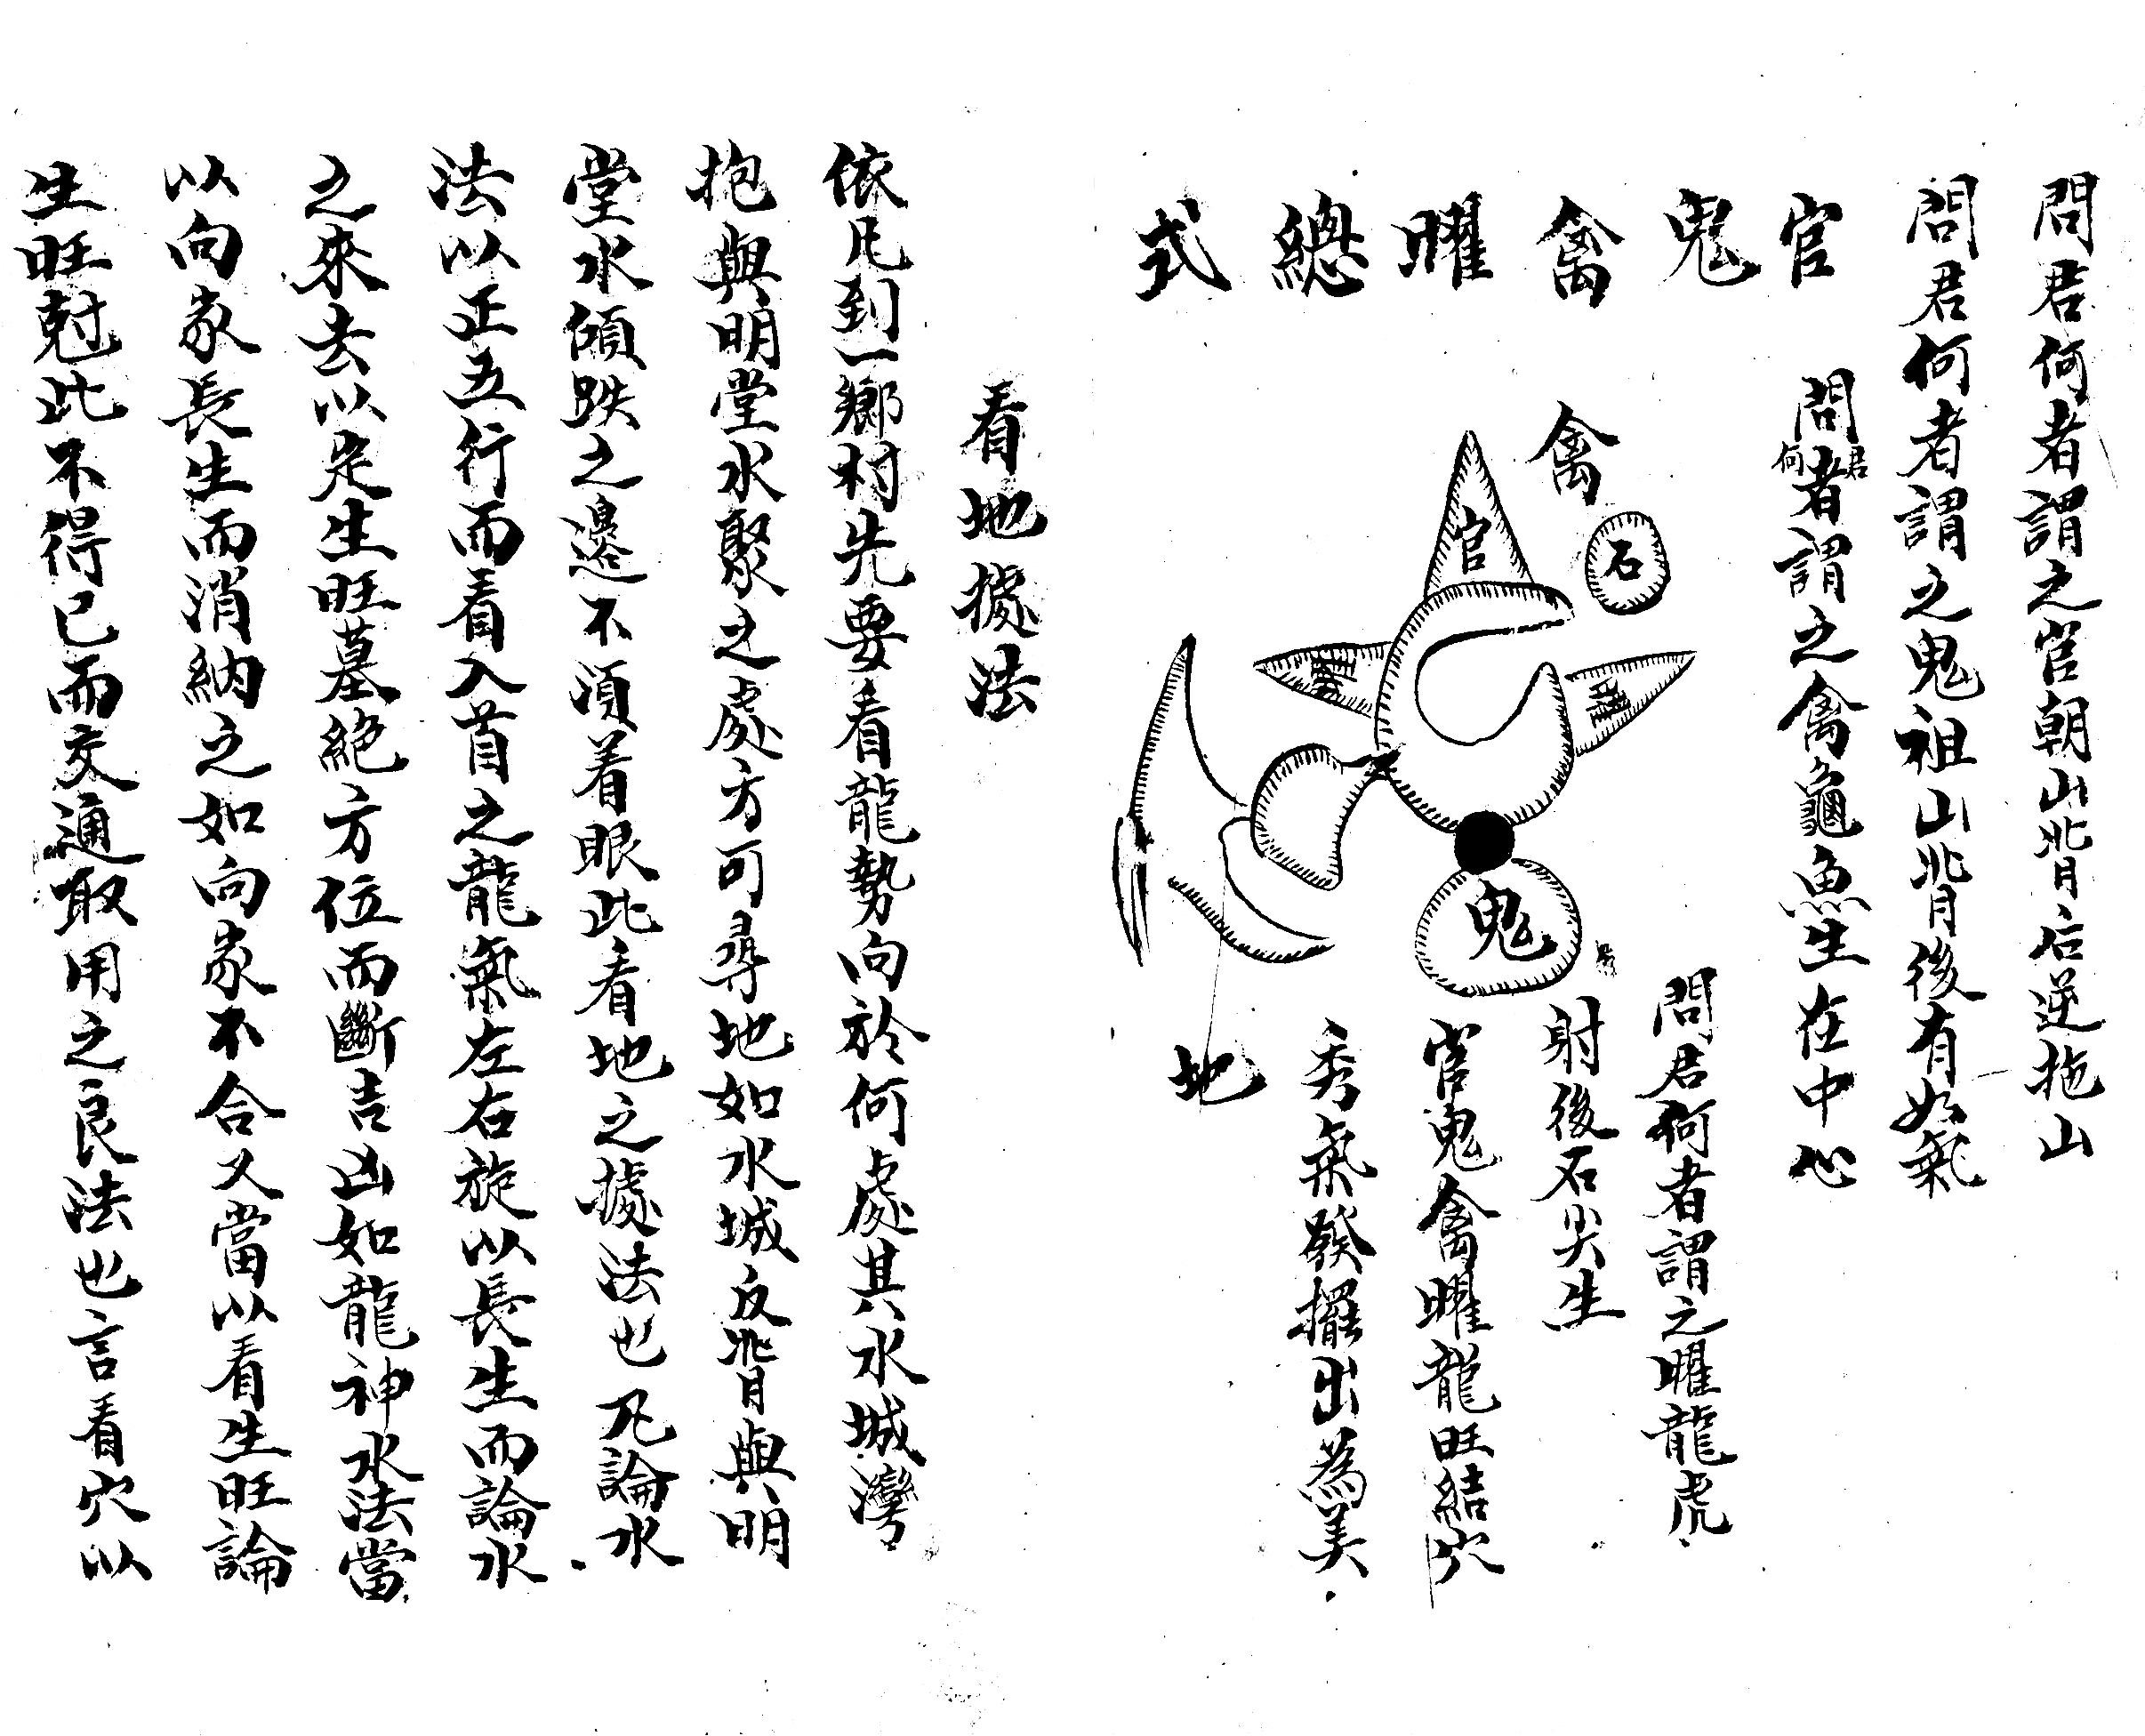 問君何者謂之官朝山背后逆拖山
問君何者謂之鬼祖山背後有如氣
官鬼禽曜總式
問君何者謂之禽龜魚生在中心
問君何者謂之曜龍虎
射後石尖生
官鬼禽曜龍旺結穴
秀氣發擺出為美
地
禽
石
官
曜
曜
鬼
看地據法
依凡到一鄉村先要看龍勢向於何處其水城灣
抱與明堂水聚之處方可尋地如水城反背與明
堂水傾跌之邊不須着眼此看地之據法也凡論水
法以正五行而看入首之龍氣左右旋以長生而論水
之來去以定生旺墓絕方位而斷吉凶如龍神水法當
以向家長生而消納之如向家不合又當以看生旺論
生旺尅此不得已而交通取用之良法也言看穴以